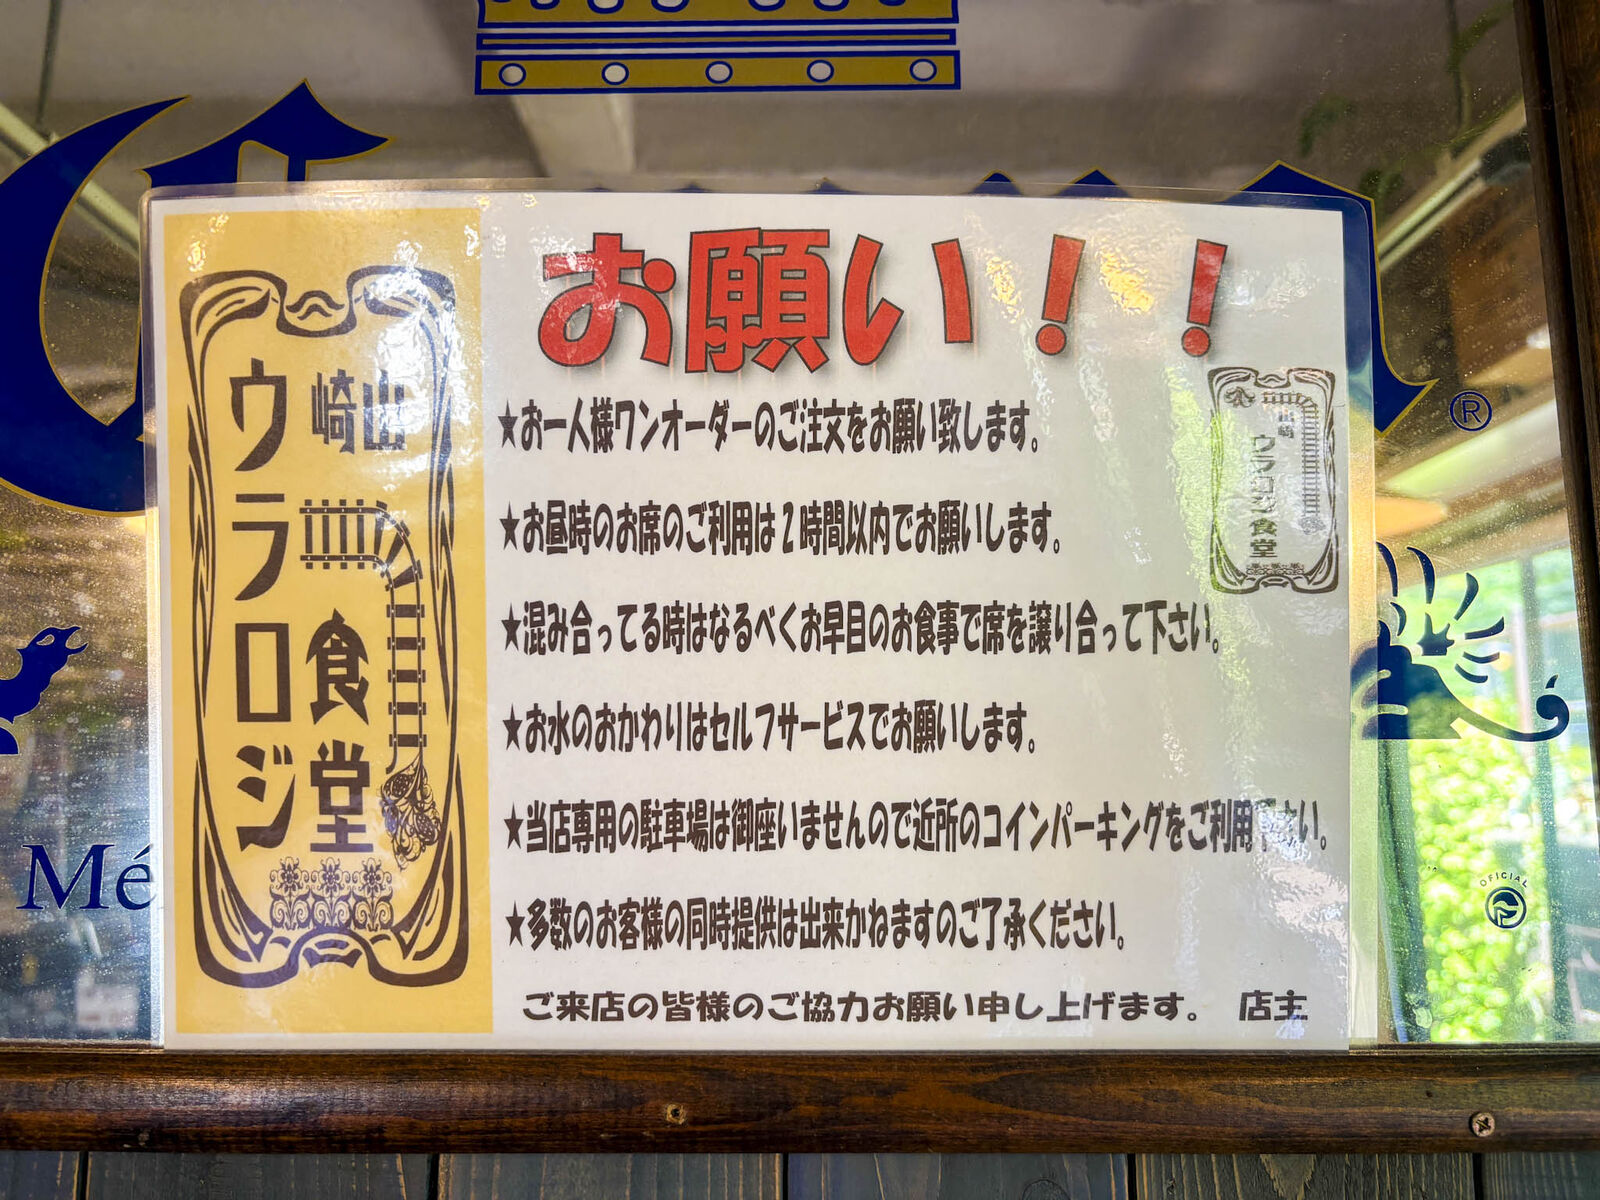 お願い！！
山崎
ウラロジ
食堂
★お一人様ワンオーダーのご注文をお願い致します。
★お昼時のお席のご利用は２時間以内でお願いします。
★混み合ってる時はなるべくお早目のお食事で席を譲り合って下さい。
★お水のおかわりはセルフサービスでお願いします。
★当店専用の駐車場は御座いませんので近所のコインパーキングをご利用下さい。
★多数のお客様の同時提供は出来かねますのご了承ください。
ご来店の皆様のご協力お願い申し上げます。　店主
山崎
ウラロジ食堂
®
Mé
OFICIAL